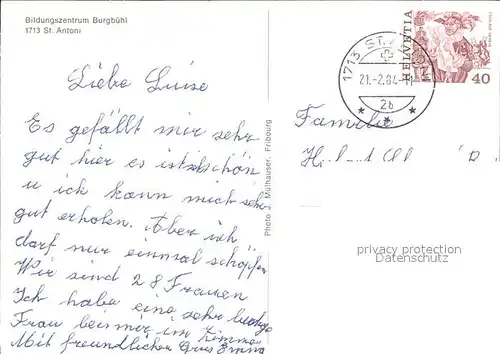 Bildungszentrum Burgbühl
1713 St. Antoni
Liebe Luise
Es gefällt mir sehr
gut hier es ist schön
u ick kann mich sehr
gut erholen. Aber ich
darf nur einmal schöpfen
Wir sind 28 Frauen
Ich habe eine sehr lustige
Frau bei mir im Zimmer
Mit freundlichen Grüs Emma
Photo J. Mülhauser, Fribourg
1713 ST.
21.-2.84-11
2b
HELVETIA
40
Familie
privacy protection
VDMedien24.de